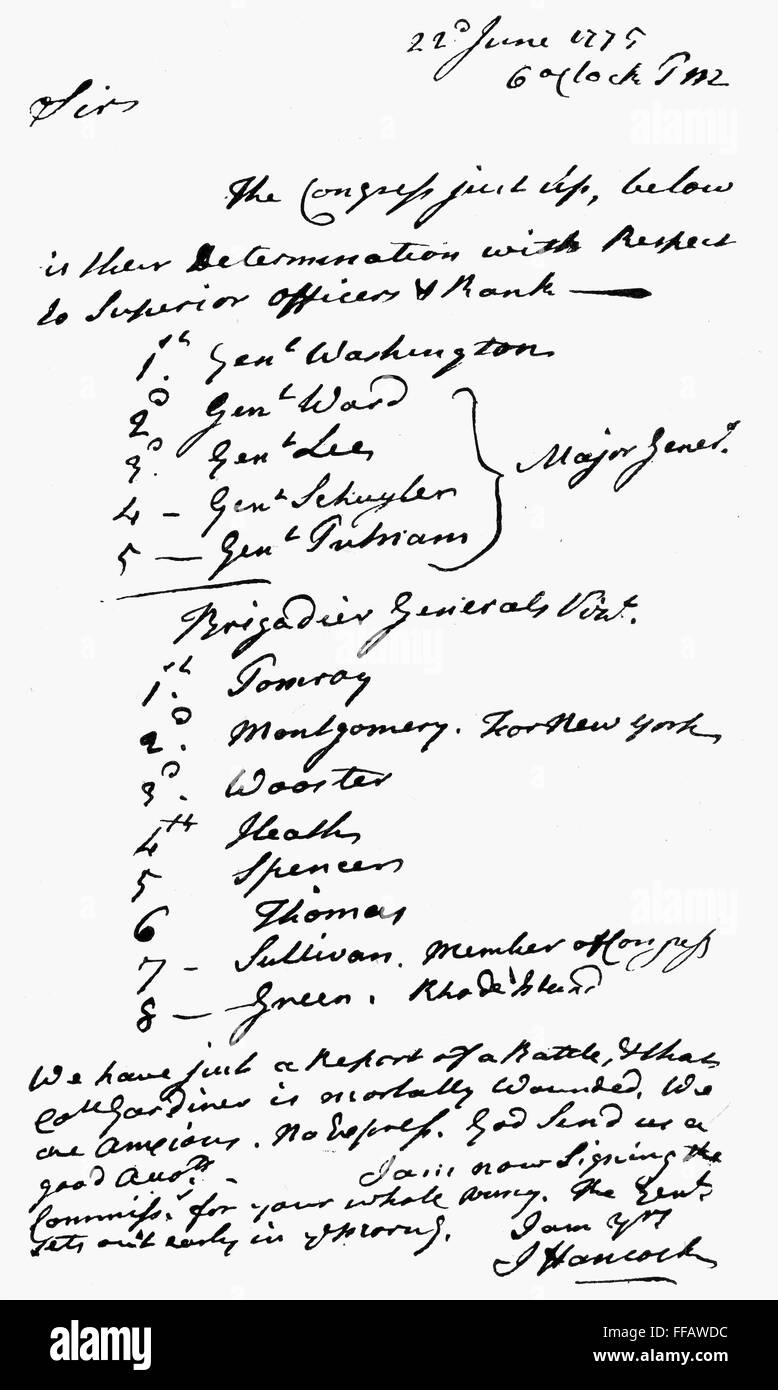 22d June 1775
6 oClock P M
Sir
The Congress just up, below
is their Determination with Respect
to Superior Officers & Rank —
1st. Genl Washington
2d Genl Ward
3d. Genl Lee
4 — Genl Schuyler
5 — Genl Putnam
Major Generls.
Brigadier Generals Vizt.
1st. Pomroy
2d. Montgomery. For New York
3d. Wooster
4th Heath
5 Spencer
6 Thomas
7 — Sullivan. Member of Congress
8 — Green. Rhode Island
We have just a Report of a Battle, & that
Coll Gardiner is mortally Wounded. We
are Anxious. No Express. God Send us a
good Acco.tt — I am now Signing the
Commiss.s for your whole Army. The Genl
sets out early in ye Morng. I am Yrs
J Hancock
alamy
Image ID: FFAWDC
www.alamy.com